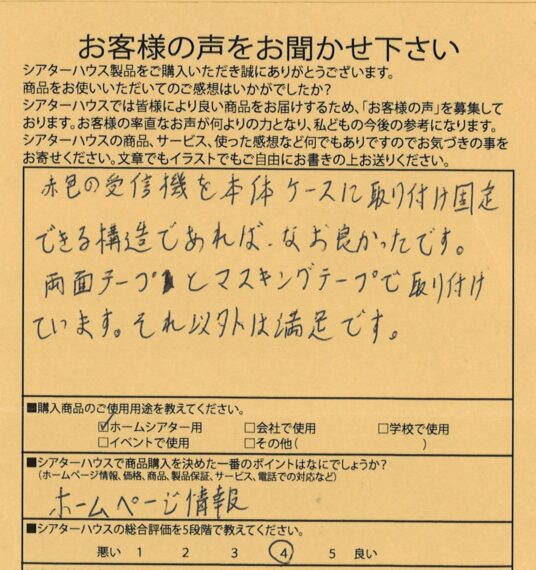 お客様の声をお聞かせ下さい
シアターハウス製品をご購入いただき誠にありがとうございます。
商品をお使いいただいてのご感想はいかがでしたか?
シアターハウスでは皆様により良い商品をお届けするため、「お客様の声」を募集して
おります。お客様の率直なお声が何よりの力となり、私どもの今後の参考になります。
シアターハウスの商品、サービス、使った感想など何でもありですのでお気づきの事を
お寄せください。文章でもイラストでもご自由にお書きの上お送りください。
赤色の受信機を本体ケースに取り付け固定
できる構造であれば、なお良かったです。
両面テープとマスキングテープで取り付け
ています。それ以外は満足です。
■購入商品のご使用用途を教えてください。
☑ホームシアター用 □会社で使用 □学校で使用
□イベントで使用 □その他( )
■シアターハウスで商品購入を決めた一番のポイントはなにでしょうか?
(ホームページ情報、価格、商品、製品保証、サービス、電話での対応など)
ホームページ情報
■シアターハウスの総合評価を5段階で教えてください。
悪い 1 2 3 4 5 良い